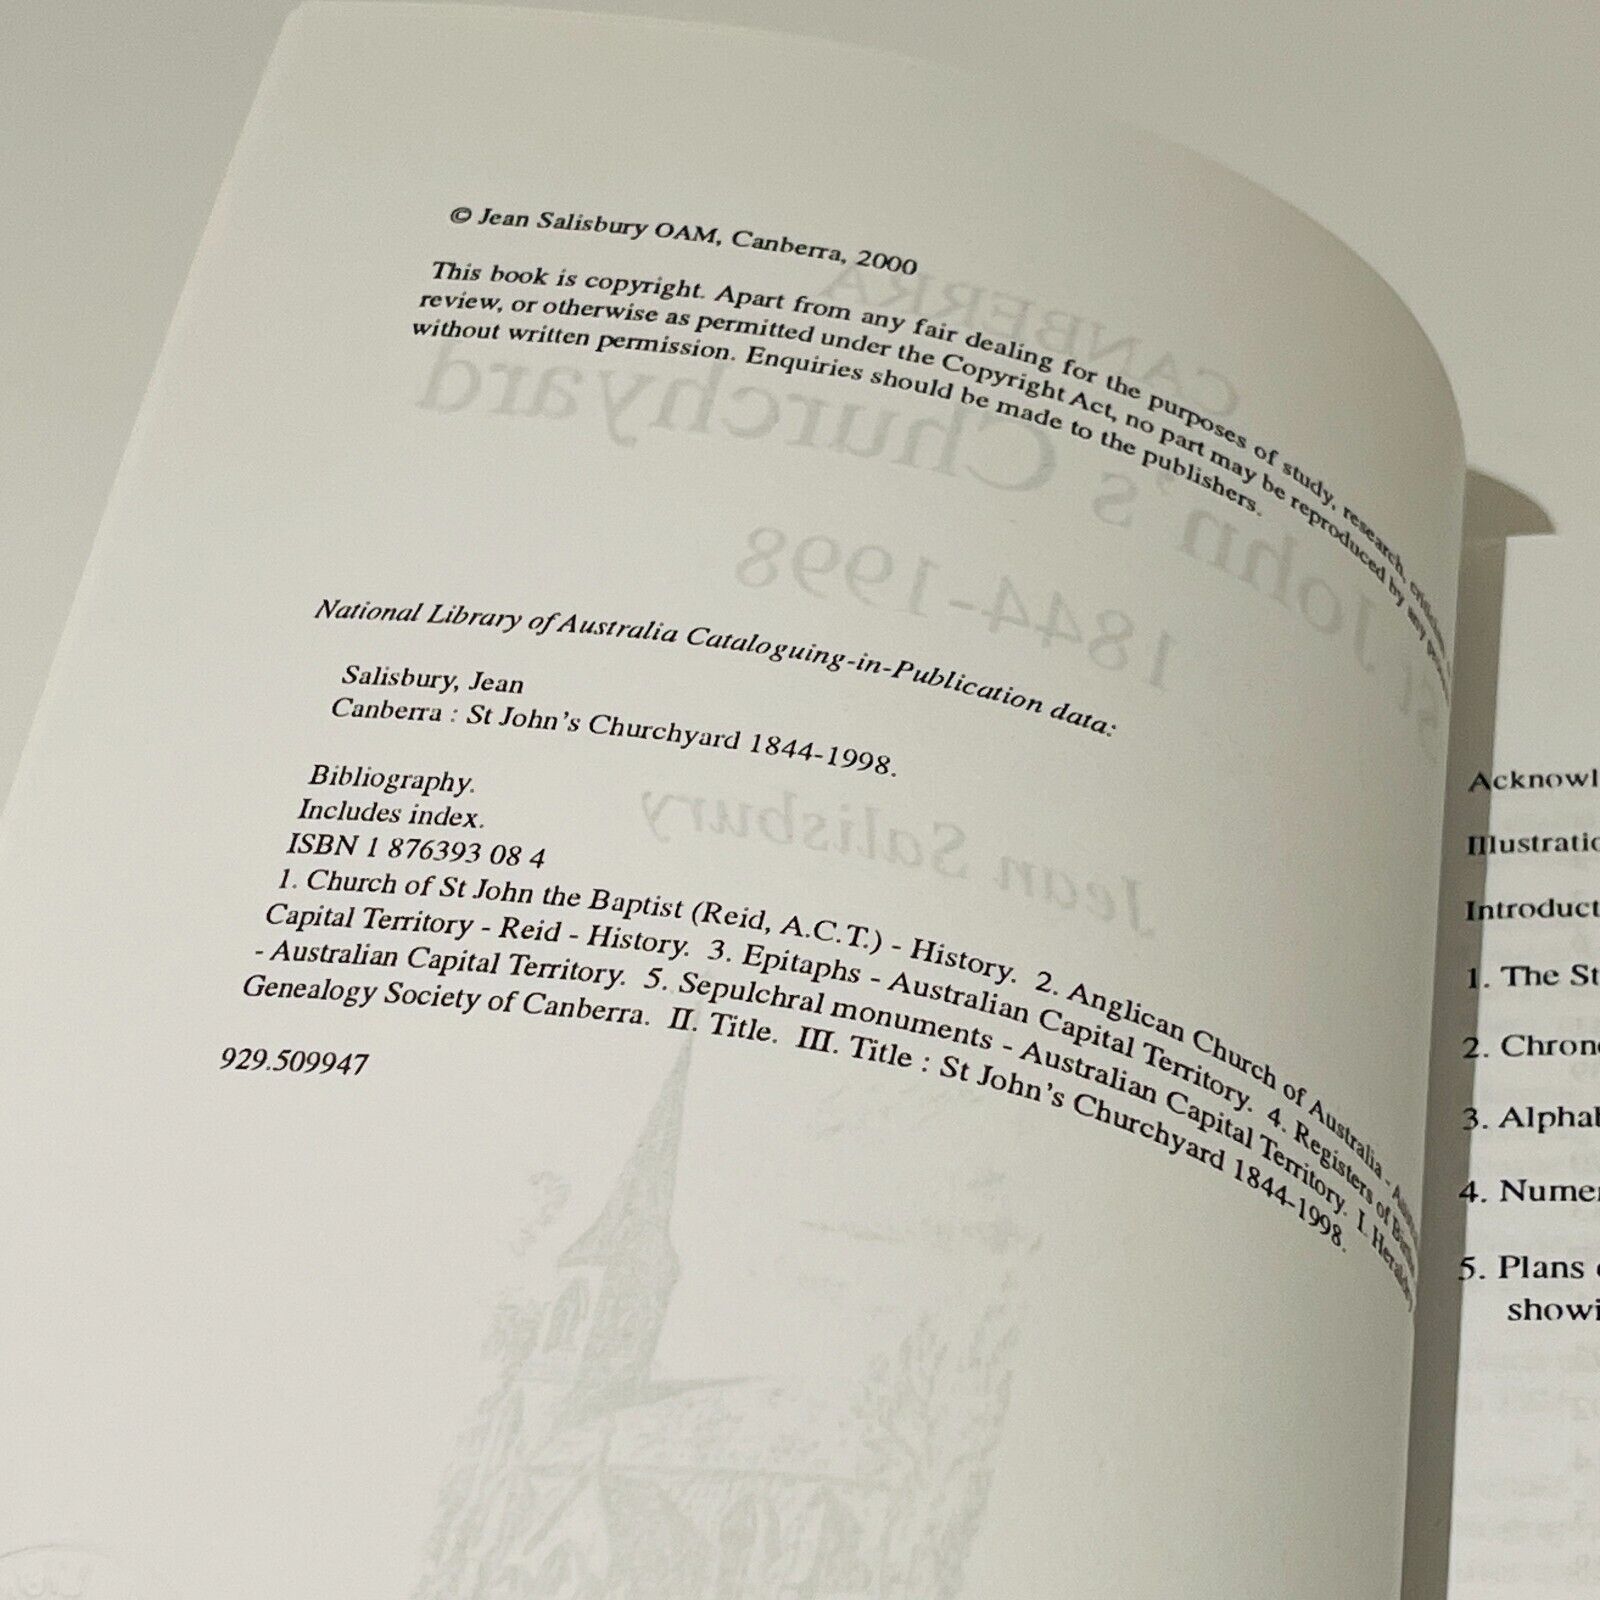 © Jean Salisbury OAM, Canberra, 2000
This book is copyright. Apart from any fair dealing for the purposes of study, research,
review, or otherwise as permitted under the Copyright Act, no part may be reproduced by any
without written permission. Enquiries should be made to the publishers.
National Library of Australia Cataloguing-in-Publication data:
Salisbury, Jean
Canberra : St John's Churchyard 1844-1998.
Bibliography.
Includes index.
ISBN 1 876393 08 4
1. Church of St John the Baptist (Reid, A.C.T.) - History. 2. Anglican Church of Australia -
Capital Territory - Reid - History. 3. Epitaphs - Australian Capital Territory. 4. Registers of
- Australian Capital Territory. 5. Sepulchral monuments - Australian Capital Territory. I. Heraldry
Genealogy Society of Canberra. II. Title. III. Title : St John's Churchyard 1844-1998.
929.509947
CANBERRA
St John's Churchyard
1844-1998
Jean Salisbury
Acknowl
Illustratio
Introduct
1. The St
2. Chron
3. Alphab
4. Numer
5. Plans
showi